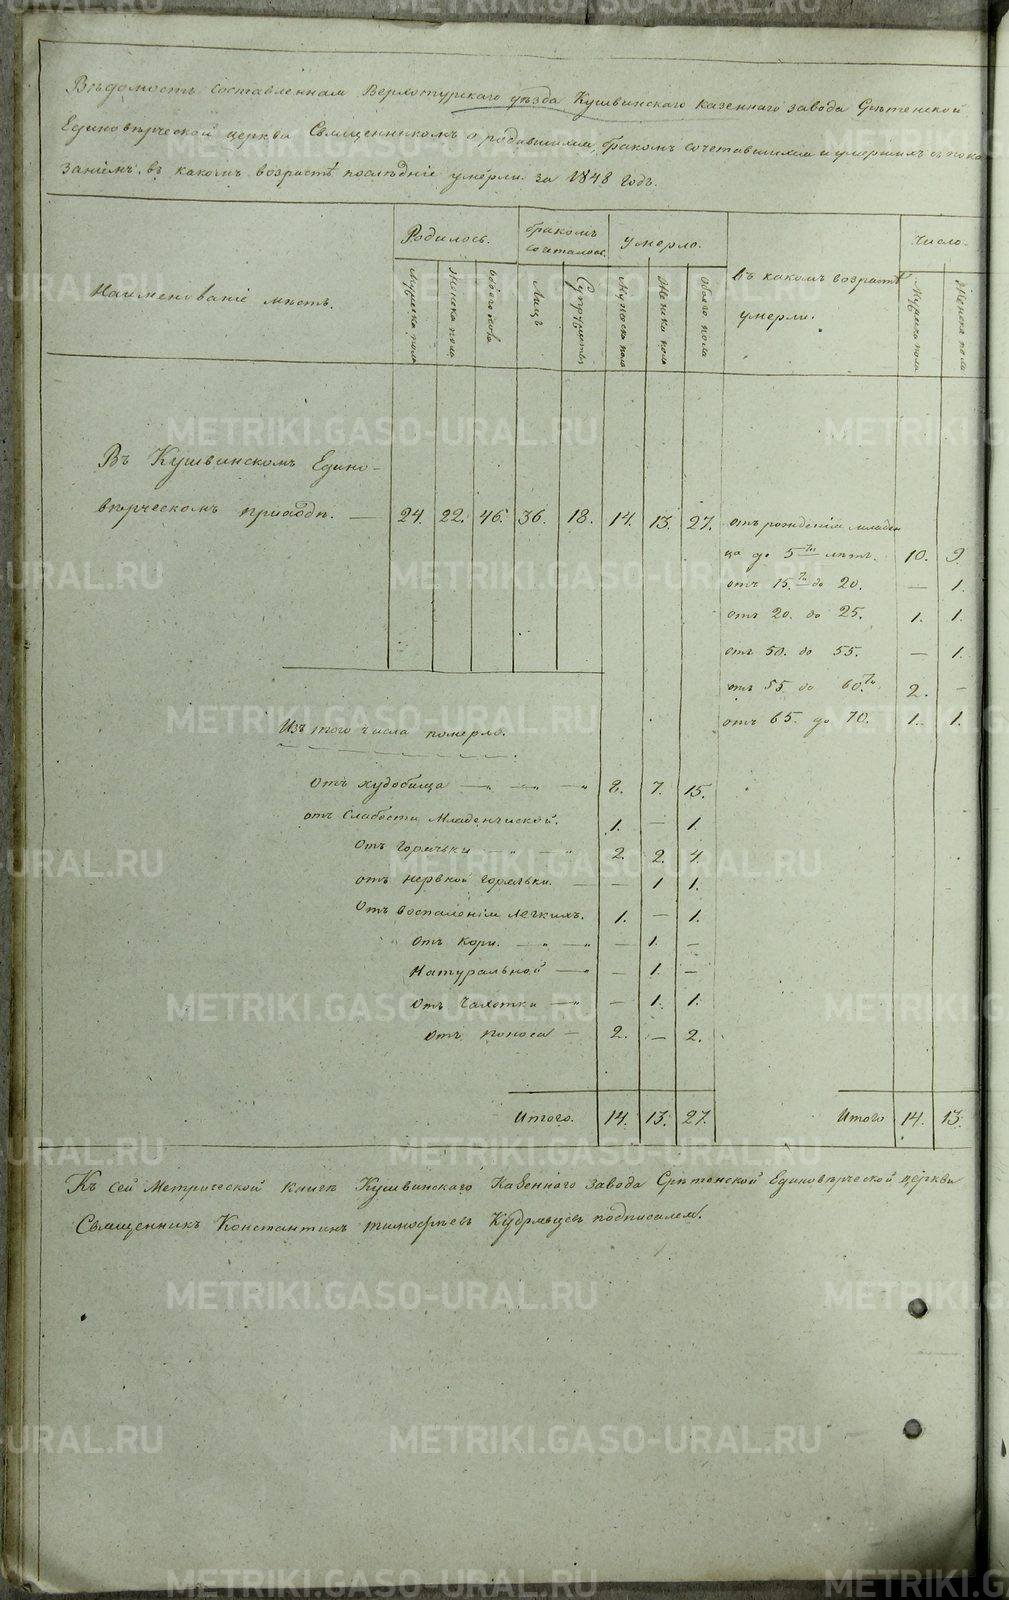 Вѣдомость составленная Верхотурскаго уѣзда Кушвинскаго казеннаго завода Срѣтенской
Единовѣрческой церкви Священникомъ о родившихся, бракомъ сочетавшихся и умершихъ съ пока
заніемъ, въ какомъ возрастѣ послѣдніе умерли за 1848 годъ.
Наименованіе мѣстъ.
Родилось.
бракомъ сочеталось.
умерло.
въ какомъ возрастѣ умерли.
Число.
Мужска пола
Женска пола
обоего пола
Лицъ
Супружествъ
Мужска пола
Женска пола
Обоего пола
Мужска пола
Женска пола
Въ Кушвинскомъ Едино-
вѣрческомъ приходѣ. — 24. 22. 46. 36. 18. 14. 13. 27.
отъ рожденія младен
ца до 5ти лѣтъ. 10. 9.
отъ 15.ти до 20. — 1.
отъ 20. до 25. 1. 1.
отъ 50. до 55. — 1.
отъ 55 до 60.ти 2. —
отъ 65. до 70. 1. 1.
Изъ того числа померло.
Отъ худобища — „ — „ — „ 8. 7. 15.
отъ Слабости Младенческой. 1. — 1.
Отъ горячьки — „ — „ 2. 2. 4.
отъ нервной горячьки. — — 1 1.
Отъ воспаленія легкихъ. 1. — 1.
Отъ кори. — „ — „ — 1. —
Натуральной — „ — 1. —
Отъ Чахотки — „ — 1. 1.
отъ поноса — 2. — 2.
Итого. 14. 13. 27.
Итого 14. 13.
Къ сей Метрической книгѣ Кушвинскаго Казеннаго завода Срѣтенской Единовѣрческой церкви
Священникъ Константинъ Тимофеевъ Кудрявцевъ подписалея.
METRIKI.GASO-URAL.RU